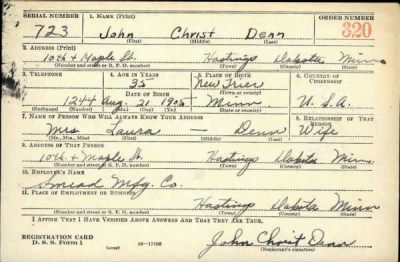 SERIAL NUMBER 1. NAME (Print) ORDER NUMBER
723 John Christ Denn 320
(First) (Middle) (Last)
2. ADDRESS (Print)
10th & Maple St. Hastings Dakota Minn
(Number and street or R. F. D. number) (Town) (County) (State)
3. TELEPHONE 4. AGE IN YEARS 5. PLACE OF BIRTH 6. COUNTRY OF CITIZENSHIP
35 New Trier
DATE OF BIRTH (Town or county)
1244 Aug. 21 1905 Minn. U.S.A.
(Exchange) (Number) (Mo.) (Day) (Yr.) (State or country)
7. NAME OF PERSON WHO WILL ALWAYS KNOW YOUR ADDRESS 8. RELATIONSHIP OF THAT PERSON
Mrs. Laura — Denn Wife
(Mr., Mrs., Miss) (First) (Middle) (Last)
9. ADDRESS OF THAT PERSON
10th & Maple St Hastings Dakota Minn.
(Number and street or R. F. D. number) (Town) (County) (State)
10. EMPLOYER'S NAME
Smead Mfg. Co.
11. PLACE OF EMPLOYMENT OR BUSINESS
Hastings Dakota Minn
(Number and street or R. F. D. number) (Town) (County) (State)
I AFFIRM THAT I HAVE VERIFIED ABOVE ANSWERS AND THAT THEY ARE TRUE.
REGISTRATION CARD
D. S. S. FORM 1 (over) 16—17105 John Christ Denn
(Registrant's signature)